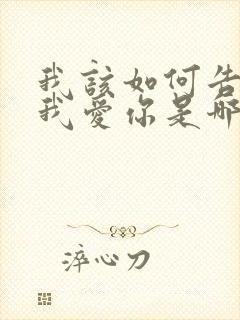 我該如何告
我愛你是哪
淬心刀